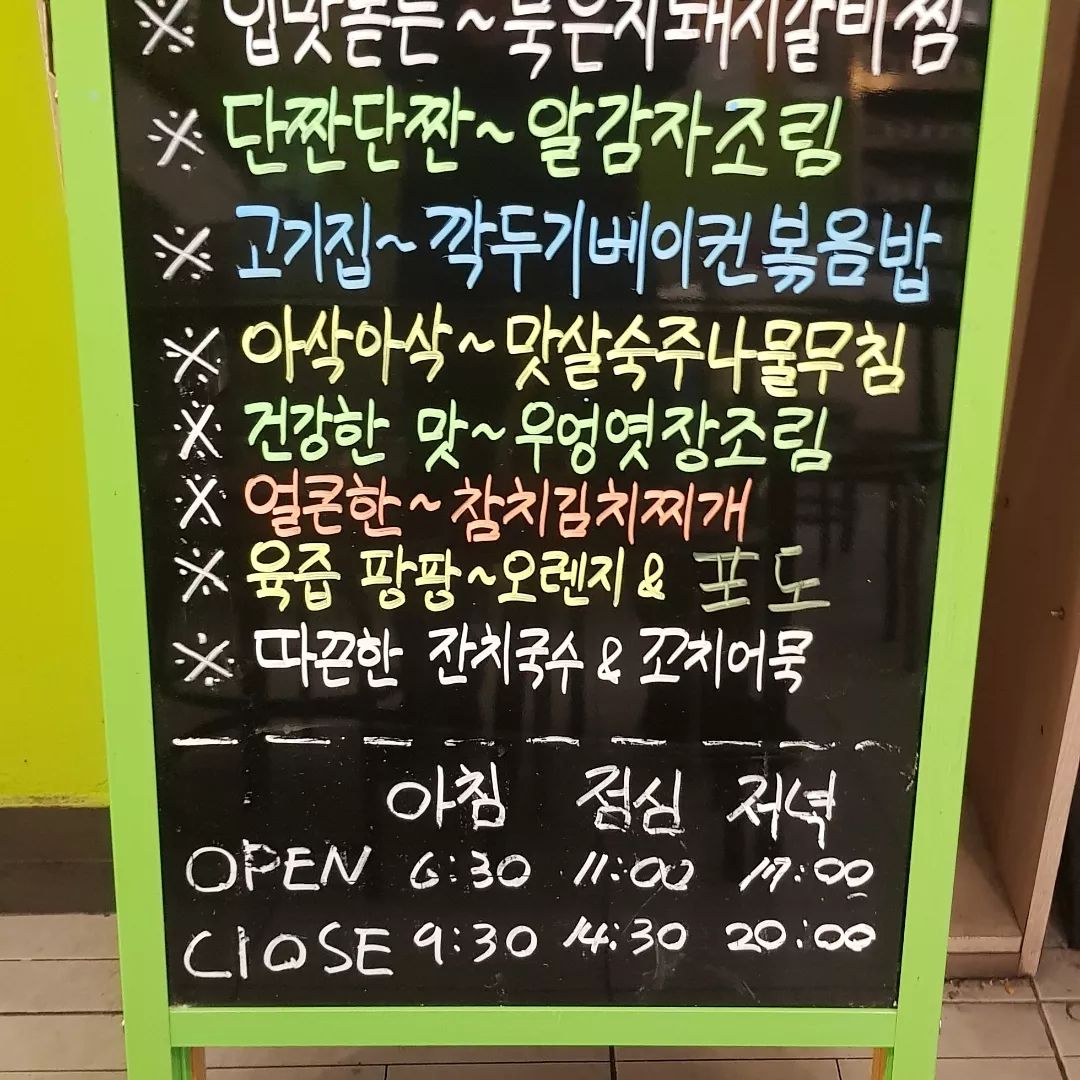 ※ 입맛돋는~묵은지돼지갈비찜
※ 단짠단짠~알감자조림
※ 고기집~깍두기베이컨볶음밥
※ 아삭아삭~맛살숙주나물무침
※ 건강한 맛~우엉엿장조림
※ 얼큰한~참치김치찌개
※ 육즙 팡팡~오렌지 & 포도
※ 따끈한 잔치국수 & 꼬치어묵
아침 점심 저녁
OPEN 6:30 11:00 17:00
ClOSE 9:30 14:30 20:00